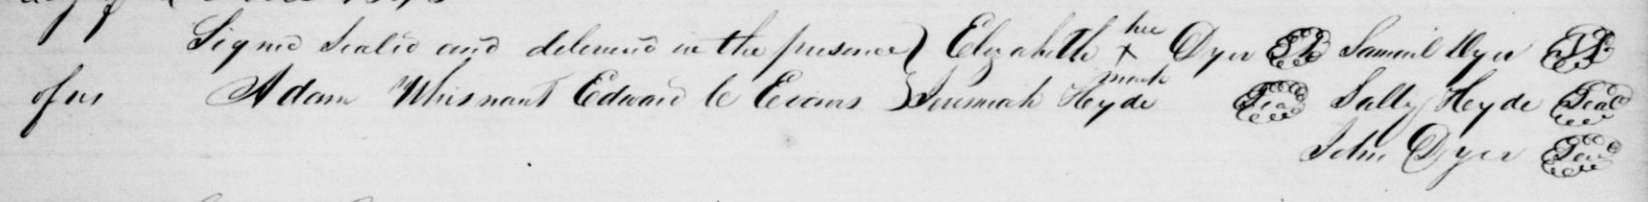 Signed Sealed and delivered in the presence } Elizabeth her x mark Dyer Seal Samuel Dyer Seal
of us Adam Whisnant Edward C Evans } Jeremiah Hyde Seal Sally Hyde Seal
John Dyer Seal